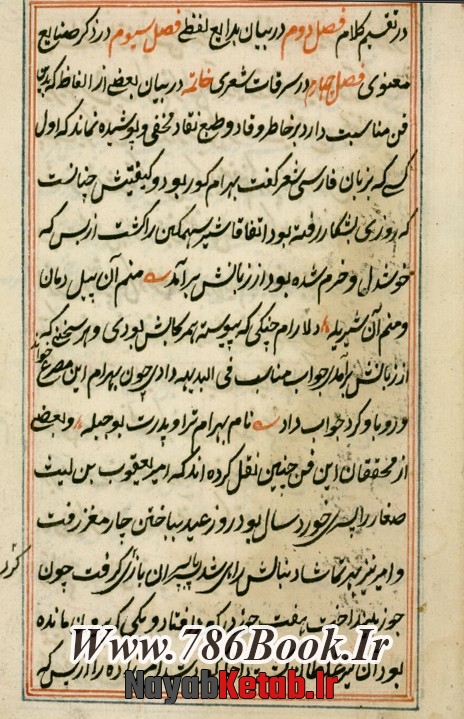 در تقسیم کلام فصل دوم در بیان بدایع لفظی فصل سیوم در ذکر صنایع
معنوی فصل چهارم در سرقات شعری خاتمه در بیان بعضی از الفاظ که بدین
فن مناسبت دارد بر خاطر وقاد و طبع نقاد مخفی و پوشیده نماند که اول
کسی که بزبان فارسی شعر گفت بهرام کور بود و کیفیتش چنانست
که روزی بشکار رفته بود اتفاقا شیر سهمکین را کشت از بس که
خوشدل و خرم شده بود از زبانش برآمد منم آن پیل دمان
و منم آن شیر یله دلارام چنکی که پیوسته همرکابش بودی و هر سخنی که
از زبانش برآمدی جواب مناسب فی البدیهه دادی چون بهرام این مصرع خواند
و رو باو کرد جواب داد نام بهرام ترا و پدرت بوجبله و بعضی
از محققان این فن چنین نقل کرده اند که امیر یعقوب بن لیث
صفار را پسری خورد سال بود روز عید بباختن چارمغز رفت
و امیر نیز بهر تماشا دنبالش رای شد با پسران بازی گرفت چون
کرد
جوز بینداخت هفت جوز بکو افتاد و یکی که بیرون مانده
بود
www.786Book.Ir
NayabKetab.Ir